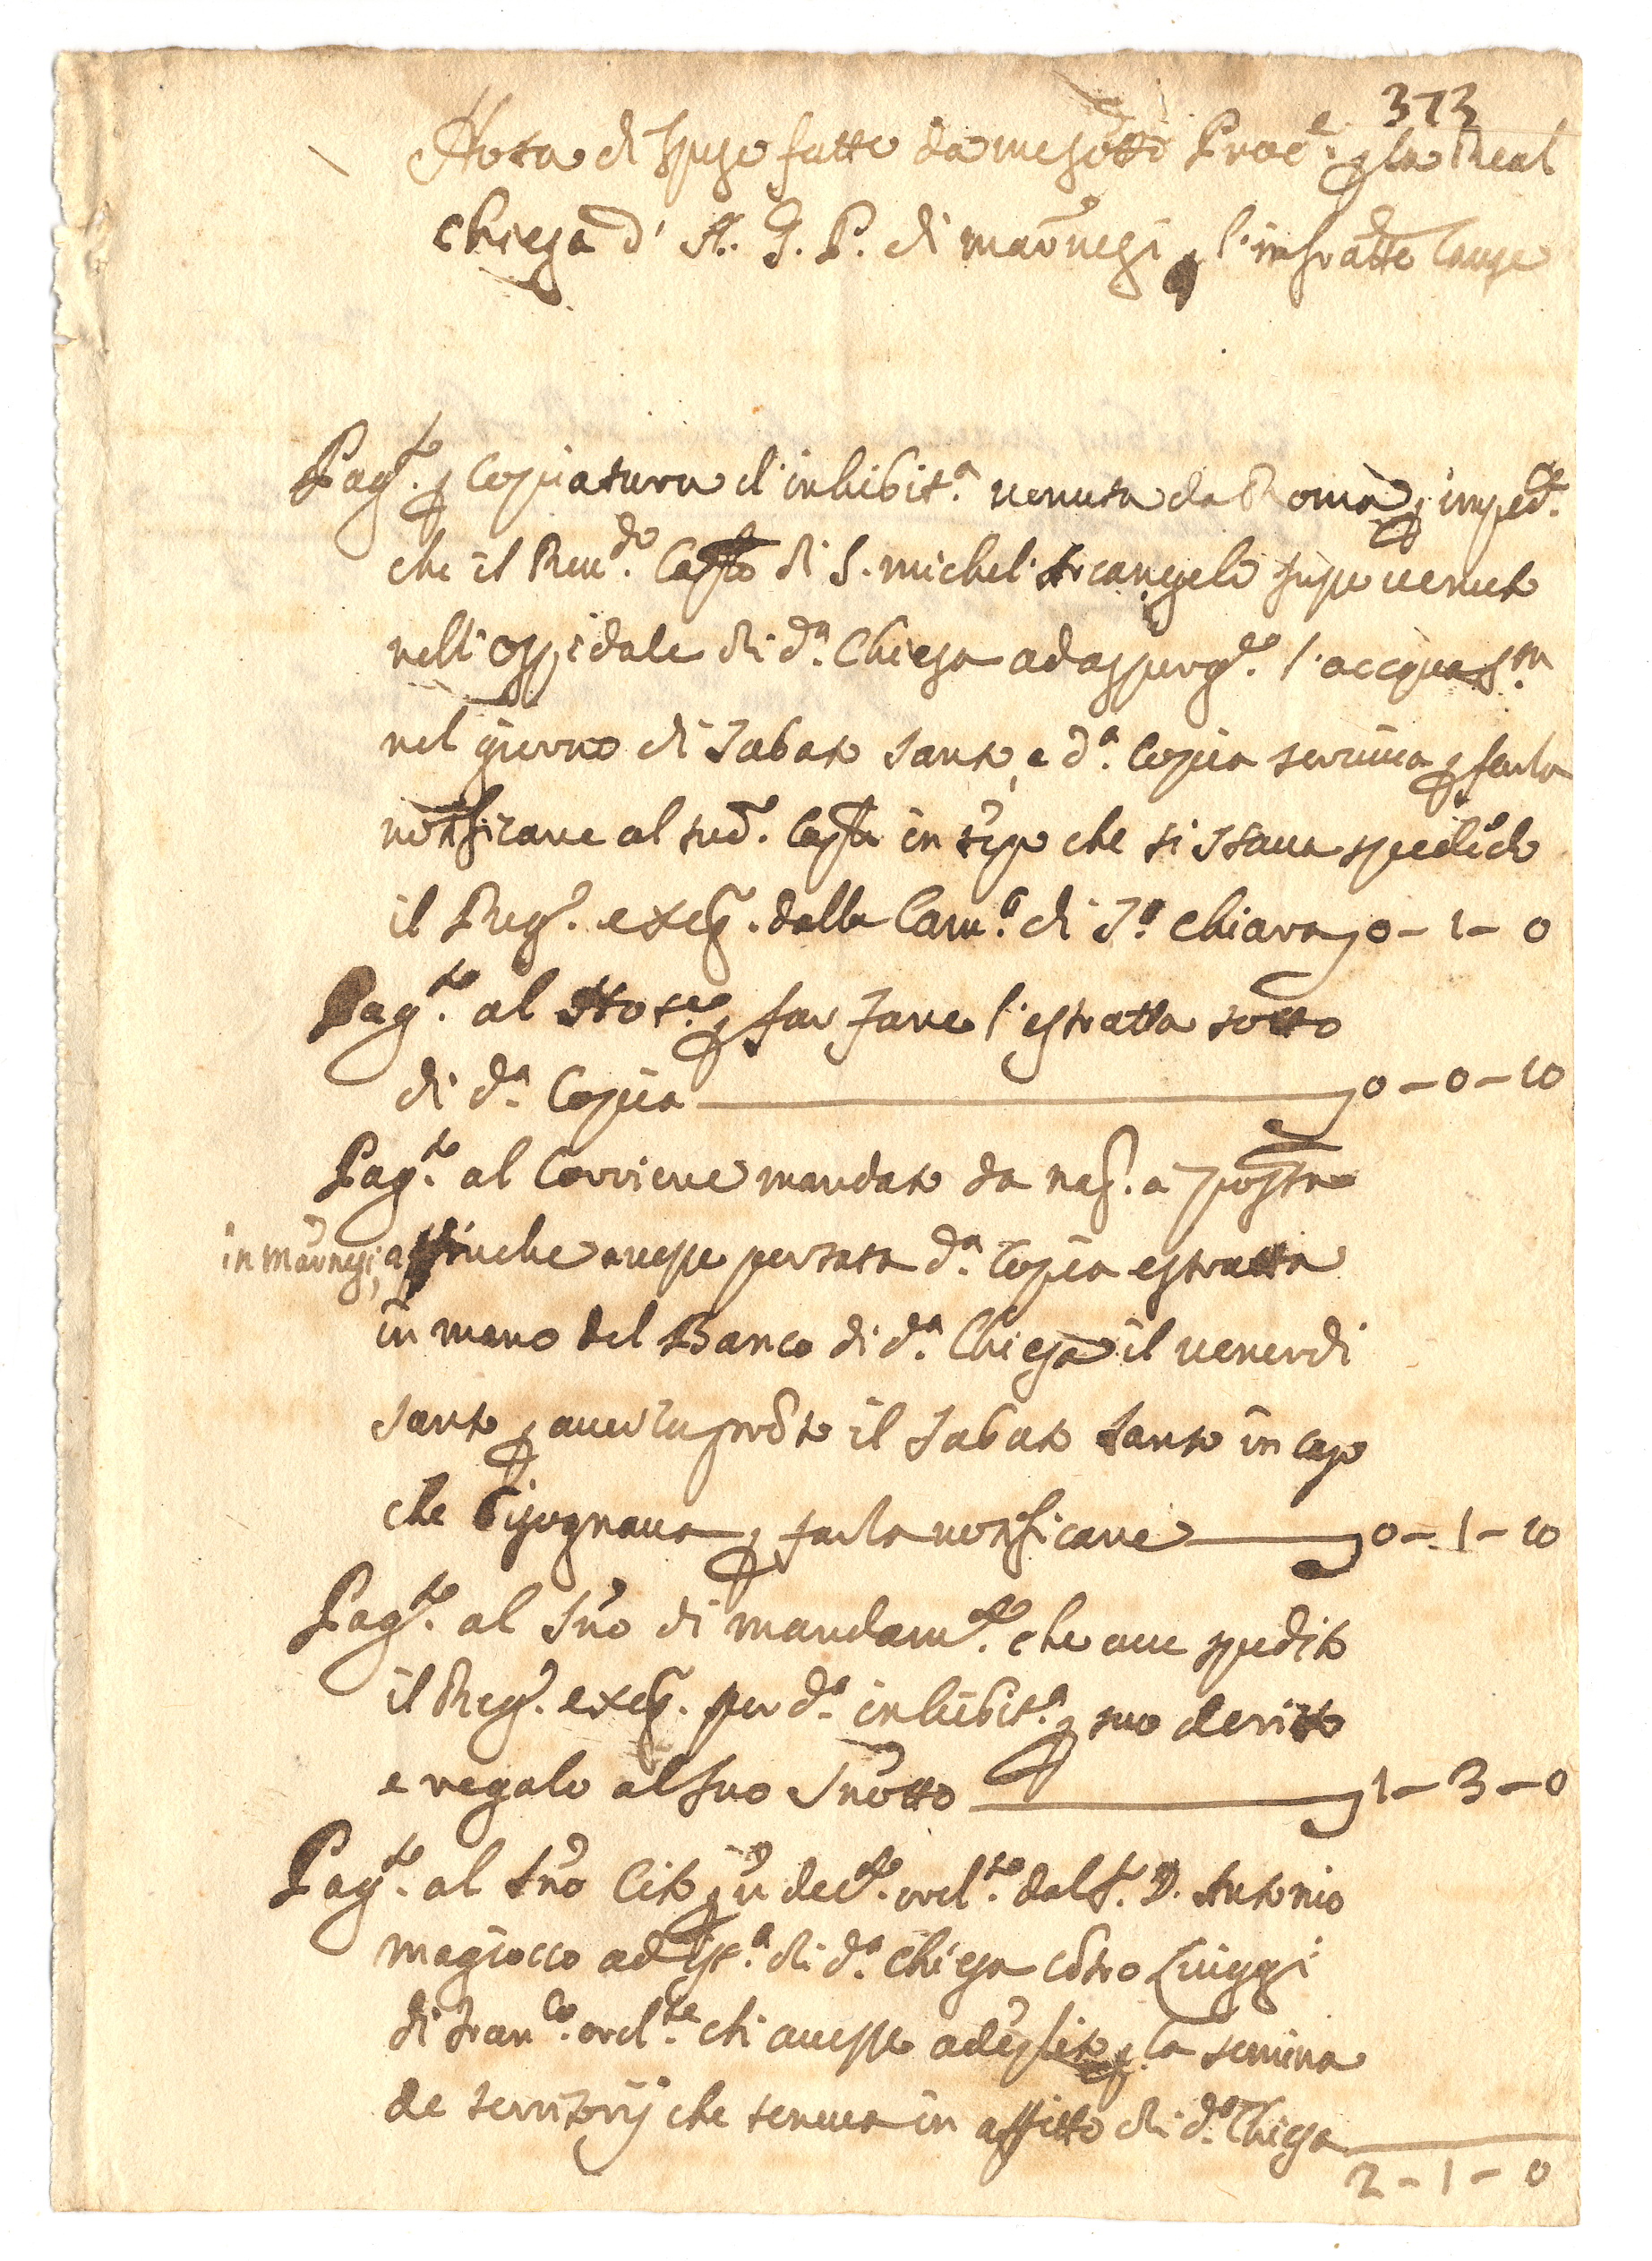 373
Nota di spese fatte da me sotto Proc.e p la Real
Chiesa d' A. G. P. di Mad.ne p l'infratte Cause
Pag.to p Copiatura d'inhibit.a venuta da Roma p imped.e
che il Reu.do Cap.lo di S. Michel' Arcangelo fusse venuto
nell'ospidale di d.a Chiesa ad asperg.e l'acqua S.ta
nel giorno di Sabato Santo, e d.a Copia serviva p farla
notificare al sud.o Cap.lo in caso che si stava spedendo
il Reg.o exeq. dalla Cam.a di S.a Chiara 0 - 1 - 0
Pag.to al Not.ro p far fare l'estratta sotto
di d.a Copia 0 - 0 - 10
Pag.to al Corriere mandato da Nap. a posta
affinche avesse portata d.a Copia estratta
in mano del Banco di d.a Chiesa il venerdi
Santo p averla pronto il Sabato Santo in caso
che bisognava p farla notificare 0 - 1 - 10
Pag.to al S.no di mandam.to che ave spedito
il Reg.o exeq. per d.a inhibit.a p suo deritto
e regalo al suo Sotto 1 - 3 - 0
Pag.to al S.no Cito p u dec.to ord.to dal S. D. Antonio
Magiocco ad ist.a di d.a Chiesa contro Luiggi
di Fran.co ord.te chi avesse adempito p la semina
de territorij che teneva in affitto di d.a Chiesa
2 - 1 - 0